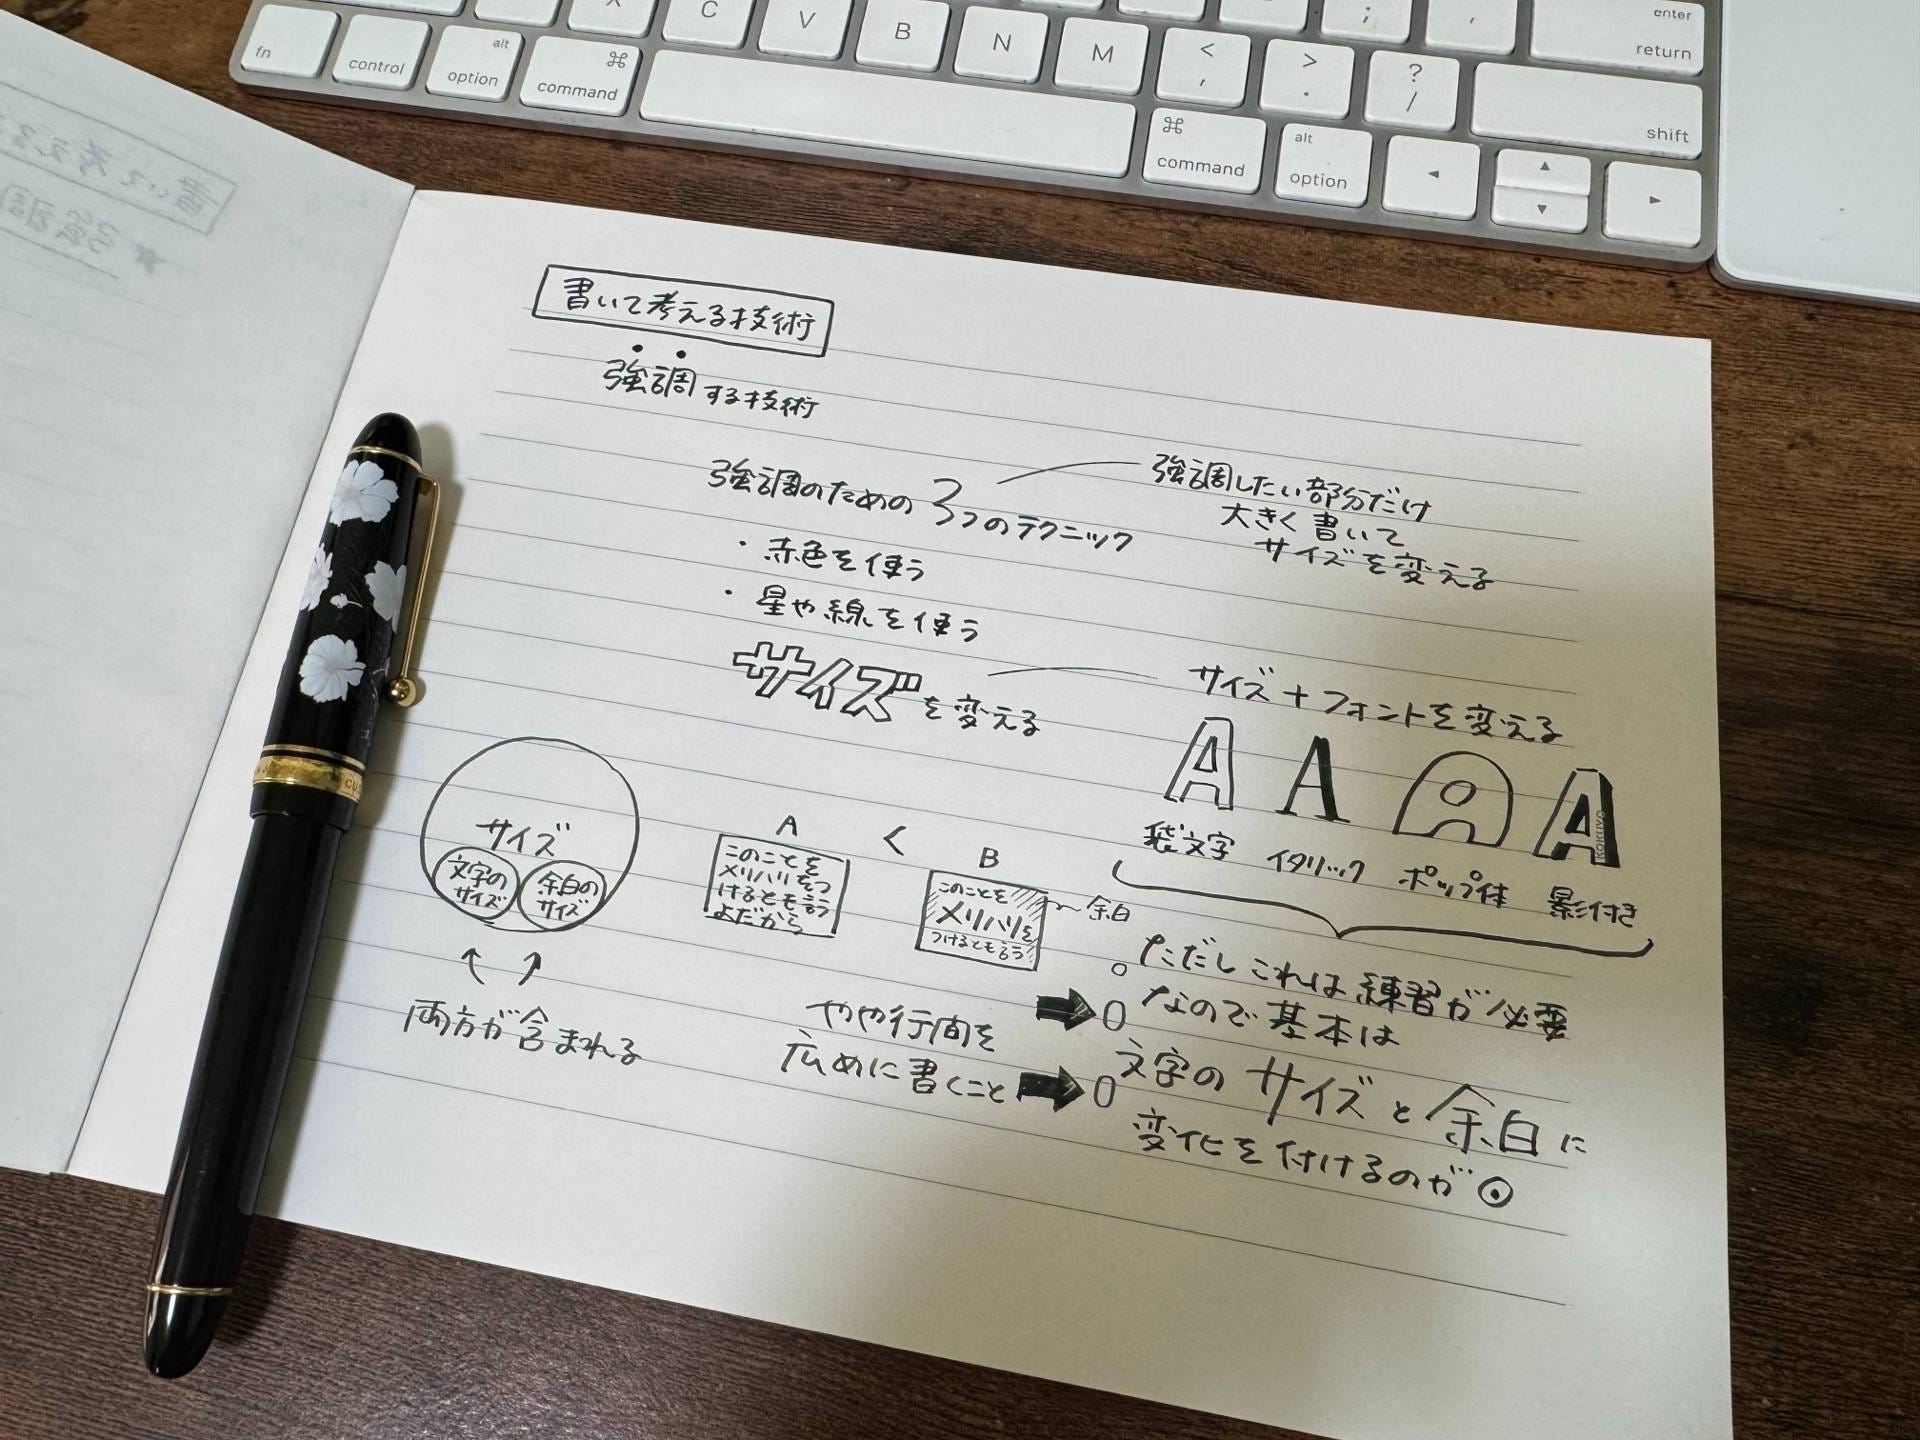 X C V B N M < , > . ? / ; ' enter return
fn control alt option ⌘ command ⌘ command alt option shift
◀ ▲ ▼ ▶
書いて考える技術
強調する技術
強調のための3つのテクニック
・赤色を使う
・星や線を使う
サイズを変える
強調したい部分だけ
大きく書いて
サイズを変える
サイズ+フォントを変える
A A A A
袋文字 イタリック ポップ体 影付き
KOKUYO
サイズ
文字の
サイズ
余白の
サイズ
両方が含まれる
A < B
このことを
メリハリをつ
けるとも言う
よだから
このことを
メリハリを
つけるとも言う
余白
やや行間を
広めに書くこと
ただしこれは練習が必要
なので基本は
文字のサイズと余白に
変化を付けるのが◎
書いて考える
★強調